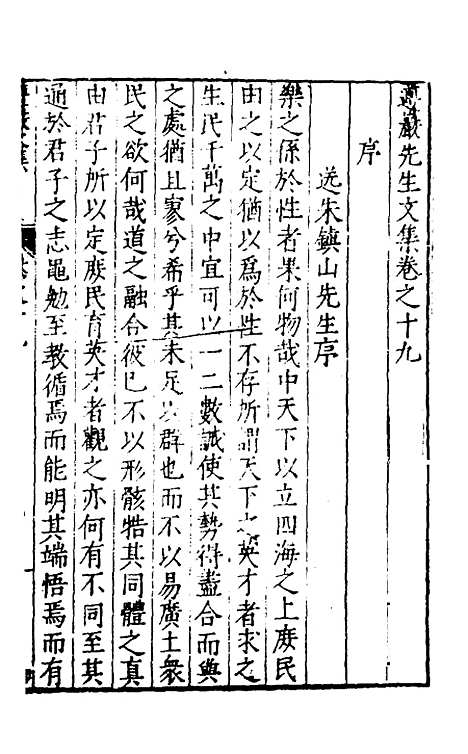 遵巖先生文集卷之十九
序
送朱鎮山先生序
樂之係於性者果何物哉中天下以立四海之上庻民
由之以定猶以爲於性不存所謂天下之英才者求之
生民千萬之中宜可以一二數誠使其勢得盡合而與
之處猶且寥兮希乎其未足以群也而不以易廣土衆
民之欲何哉道之融合彼已不以形骸牿其同體之真
由君子所以定庻民育英才者觀之亦何有不同至其
通於君子之志黽勉至教循焉而能明其端悟焉而有